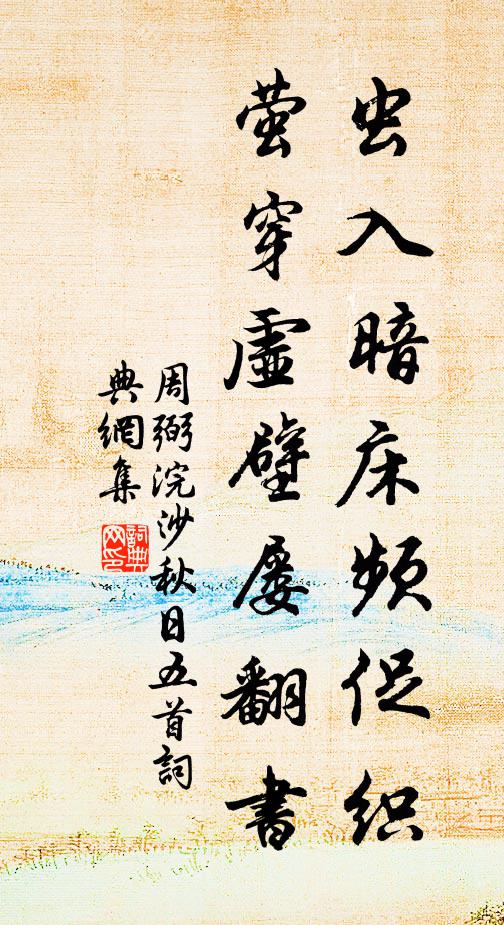 虫入暗床频促织
萤穿虚壁屡翻书
周弼浣沙秋日五首詞
典網集
詞典網印